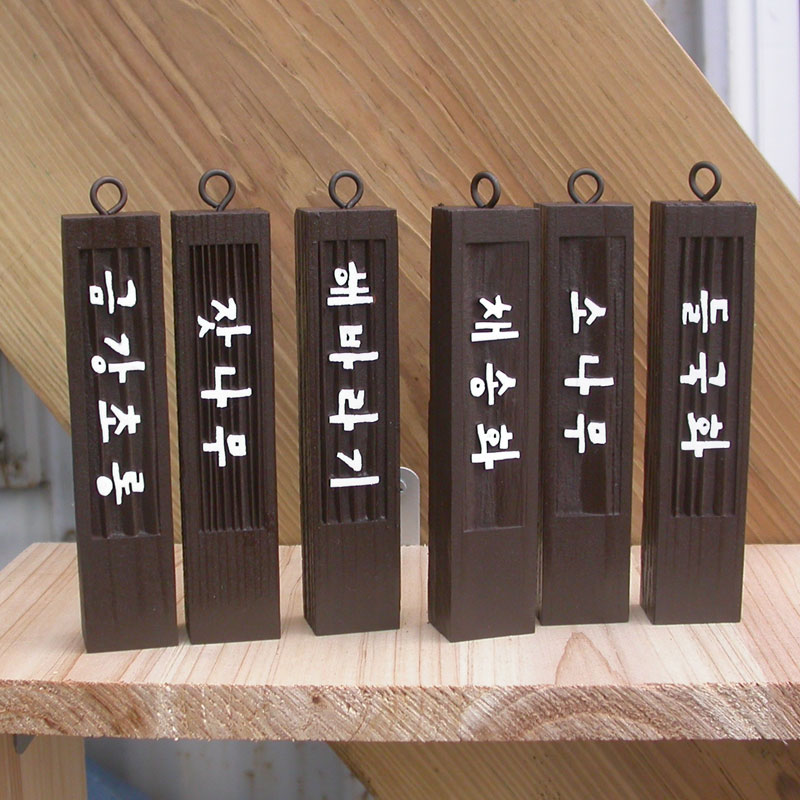 금강초롱
잣나무
해바라기
채송화
소나무
들국화